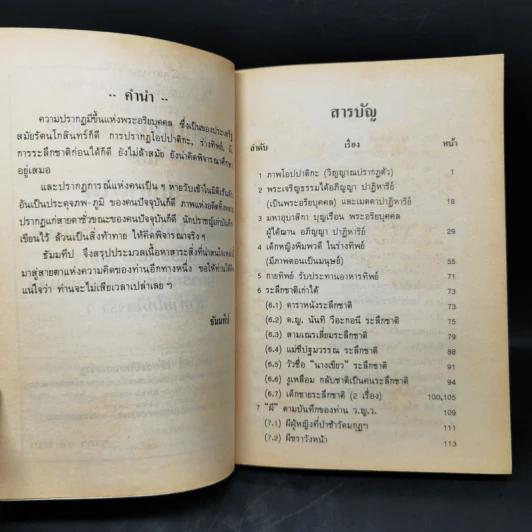 ·· คำนำ ··
ความปรากฏมีขึ้นแห่งพระอริยบุคคล ซึ่งเป็นของประเสริฐ
สมัยรัตนโกสินทร์ก็ดี การปรากฏโอปปาติกะ, ร่างทิพย์,
การระลึกชาติก่อนได้ก็ดี ยังไม่ล้าสมัย ยังน่าคิดพิจารณาศึกษา
อยู่เสมอ
และปรากฏการณ์แห่งคนเป็น ๆ หายวับเข้าในมิติเร้นลับ
อันเป็นประตูภพ-ภูมิ ของคนปัจจุบันก็ดี ภาพแห่งอดีตครั้ง
ปรากฏแก่สายตาชั่วขณะของคนปัจจุบันก็ดี นักปราชญ์เก่าบันทึก
เขียนไว้ ล้วนเป็นสิ่งท้าทาย ให้คิดพิจารณาจริง ๆ
ธัมมทีป จึงสรุปประมวลเนื้อหาสาระสิ่งที่น่าสนใจ
มาสู่สายตาแห่งความคิดของท่านอีกทางหนึ่ง ขอให้ท่าน
แน่ใจว่า ท่านจะไม่เสียเวลาเปล่าเลย ๆ
ธัมมทีป
สารบัญ
ลำดับ เรื่อง หน้า
1 ภาพโอปปาติกะ (วิญญาณปรากฏตัว) 1
2 พระเจริญธรรมได้อภิญญา ปาฏิหาริย์
(เป็นพระอริยบุคคล) และเมตตาปาฏิหาริย์ 18
3 มหาอุบาสิกา บุญเรือน พระอริยบุคคล
ผู้ได้ฌาน อภิญญา ปาฏิหาริย์ 29
4 เด็กหญิงพิมพวดี ในร่างทิพย์
(มีภาพตอนเป็นมนุษย์) 55
5 กายทิพย์ รับประทานอาหารทิพย์ 71
6 ระลึกชาติเก่าได้
(6.1) ดาราหนังระลึกชาติ 73
(6.2) ด.ญ. นันทิ วีอะกอนี ระลึกชาติ 75
(6.3) สามเณรเลี่ยมระลึกชาติ 79
(6.4) แม่ชีปฐมวรรณ ระลึกชาติ 88
(6.5) วัวชื่อ "นางเขียว" ระลึกชาติ 91
(6.6) งูเหลือม กลับชาติเป็นคนระลึกชาติ 94
(6.7) เด็กชายระลึกชาติ (2 เรื่อง) 100,105
7 "ผี" ตามบันทึกของท่าน ว.ญ.ว. 109
(7.1) ผีผู้หญิงที่ป่าช้าวัดมกุฏฯ 111
(7.2) ผีชราวังหน้า 113